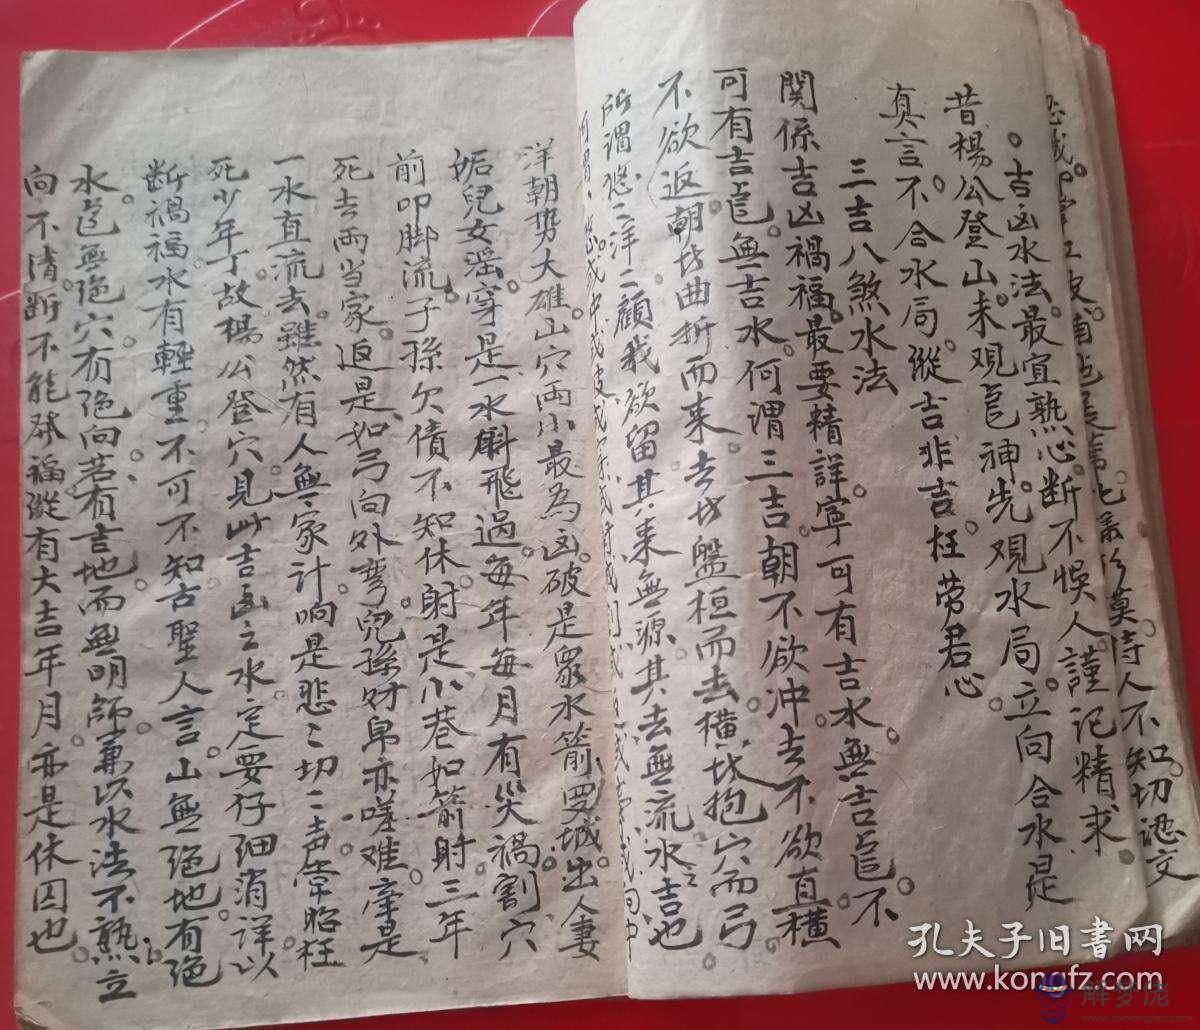 吉凶水法。最宜熟心。断不悮人。謹记精求。
昔楊公登山。未观邑神。先观水局。立向合水是
真言。不合水局。縱吉非吉。枉劳君心。
三吉八煞水法
関係吉凶禍福。最要精詳。寧可有吉水無吉邑。不
可有吉邑無吉水。何謂三吉。朝不欲冲。去不欲直。横
不欲返。朝者曲折而来。去者盤桓而去。横者抱穴而弓。
所谓悠二洋二。顧我欲留。其来無源。其去無流。水之吉也
洋朝势大雄。山穴両小最為凶。破是眾水箭罗城。出人妻
妬兒女滛。穿是一水斛飛過。每年每月有災禍。割穴
前叩脚流。子孫欠债不知休。射是小巷如箭射。三年
死去両当家。返是如弓向外弯。兒孫财帛亦嗟难。牵是
一水直流去。雖然有人無家计。响是悲二切二声。牵昭枉
死少年丁。故楊公登穴。見此吉凶之水。定要仔细消详。以
断禍福。水有輕重。不可不知。古聖人言。山無绝地有绝
水。邑無绝穴有绝向。若有吉地而無明師。兼以水法不熟。立
向不清。断不能發福。縱有大吉年月。亦是休囚也。
孔夫子旧書网
www.kongfz.com
解梦佬